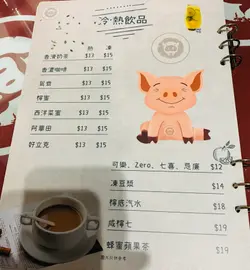 冷·熱飲品
熱 凍
香滑奶茶 $13 $15
香濃咖啡 $13 $15
鴛鴦 $13 $15
檸蜜 $13 $15
西洋菜蜜 $13 $15
阿華田 $13 $15
好立克 $13 $15
可樂、Zero、七喜、忌廉 $12
凍豆類 $14
檸檬汽水 $18
咸檸七 $19
蜂蜜蘋果茶 $19